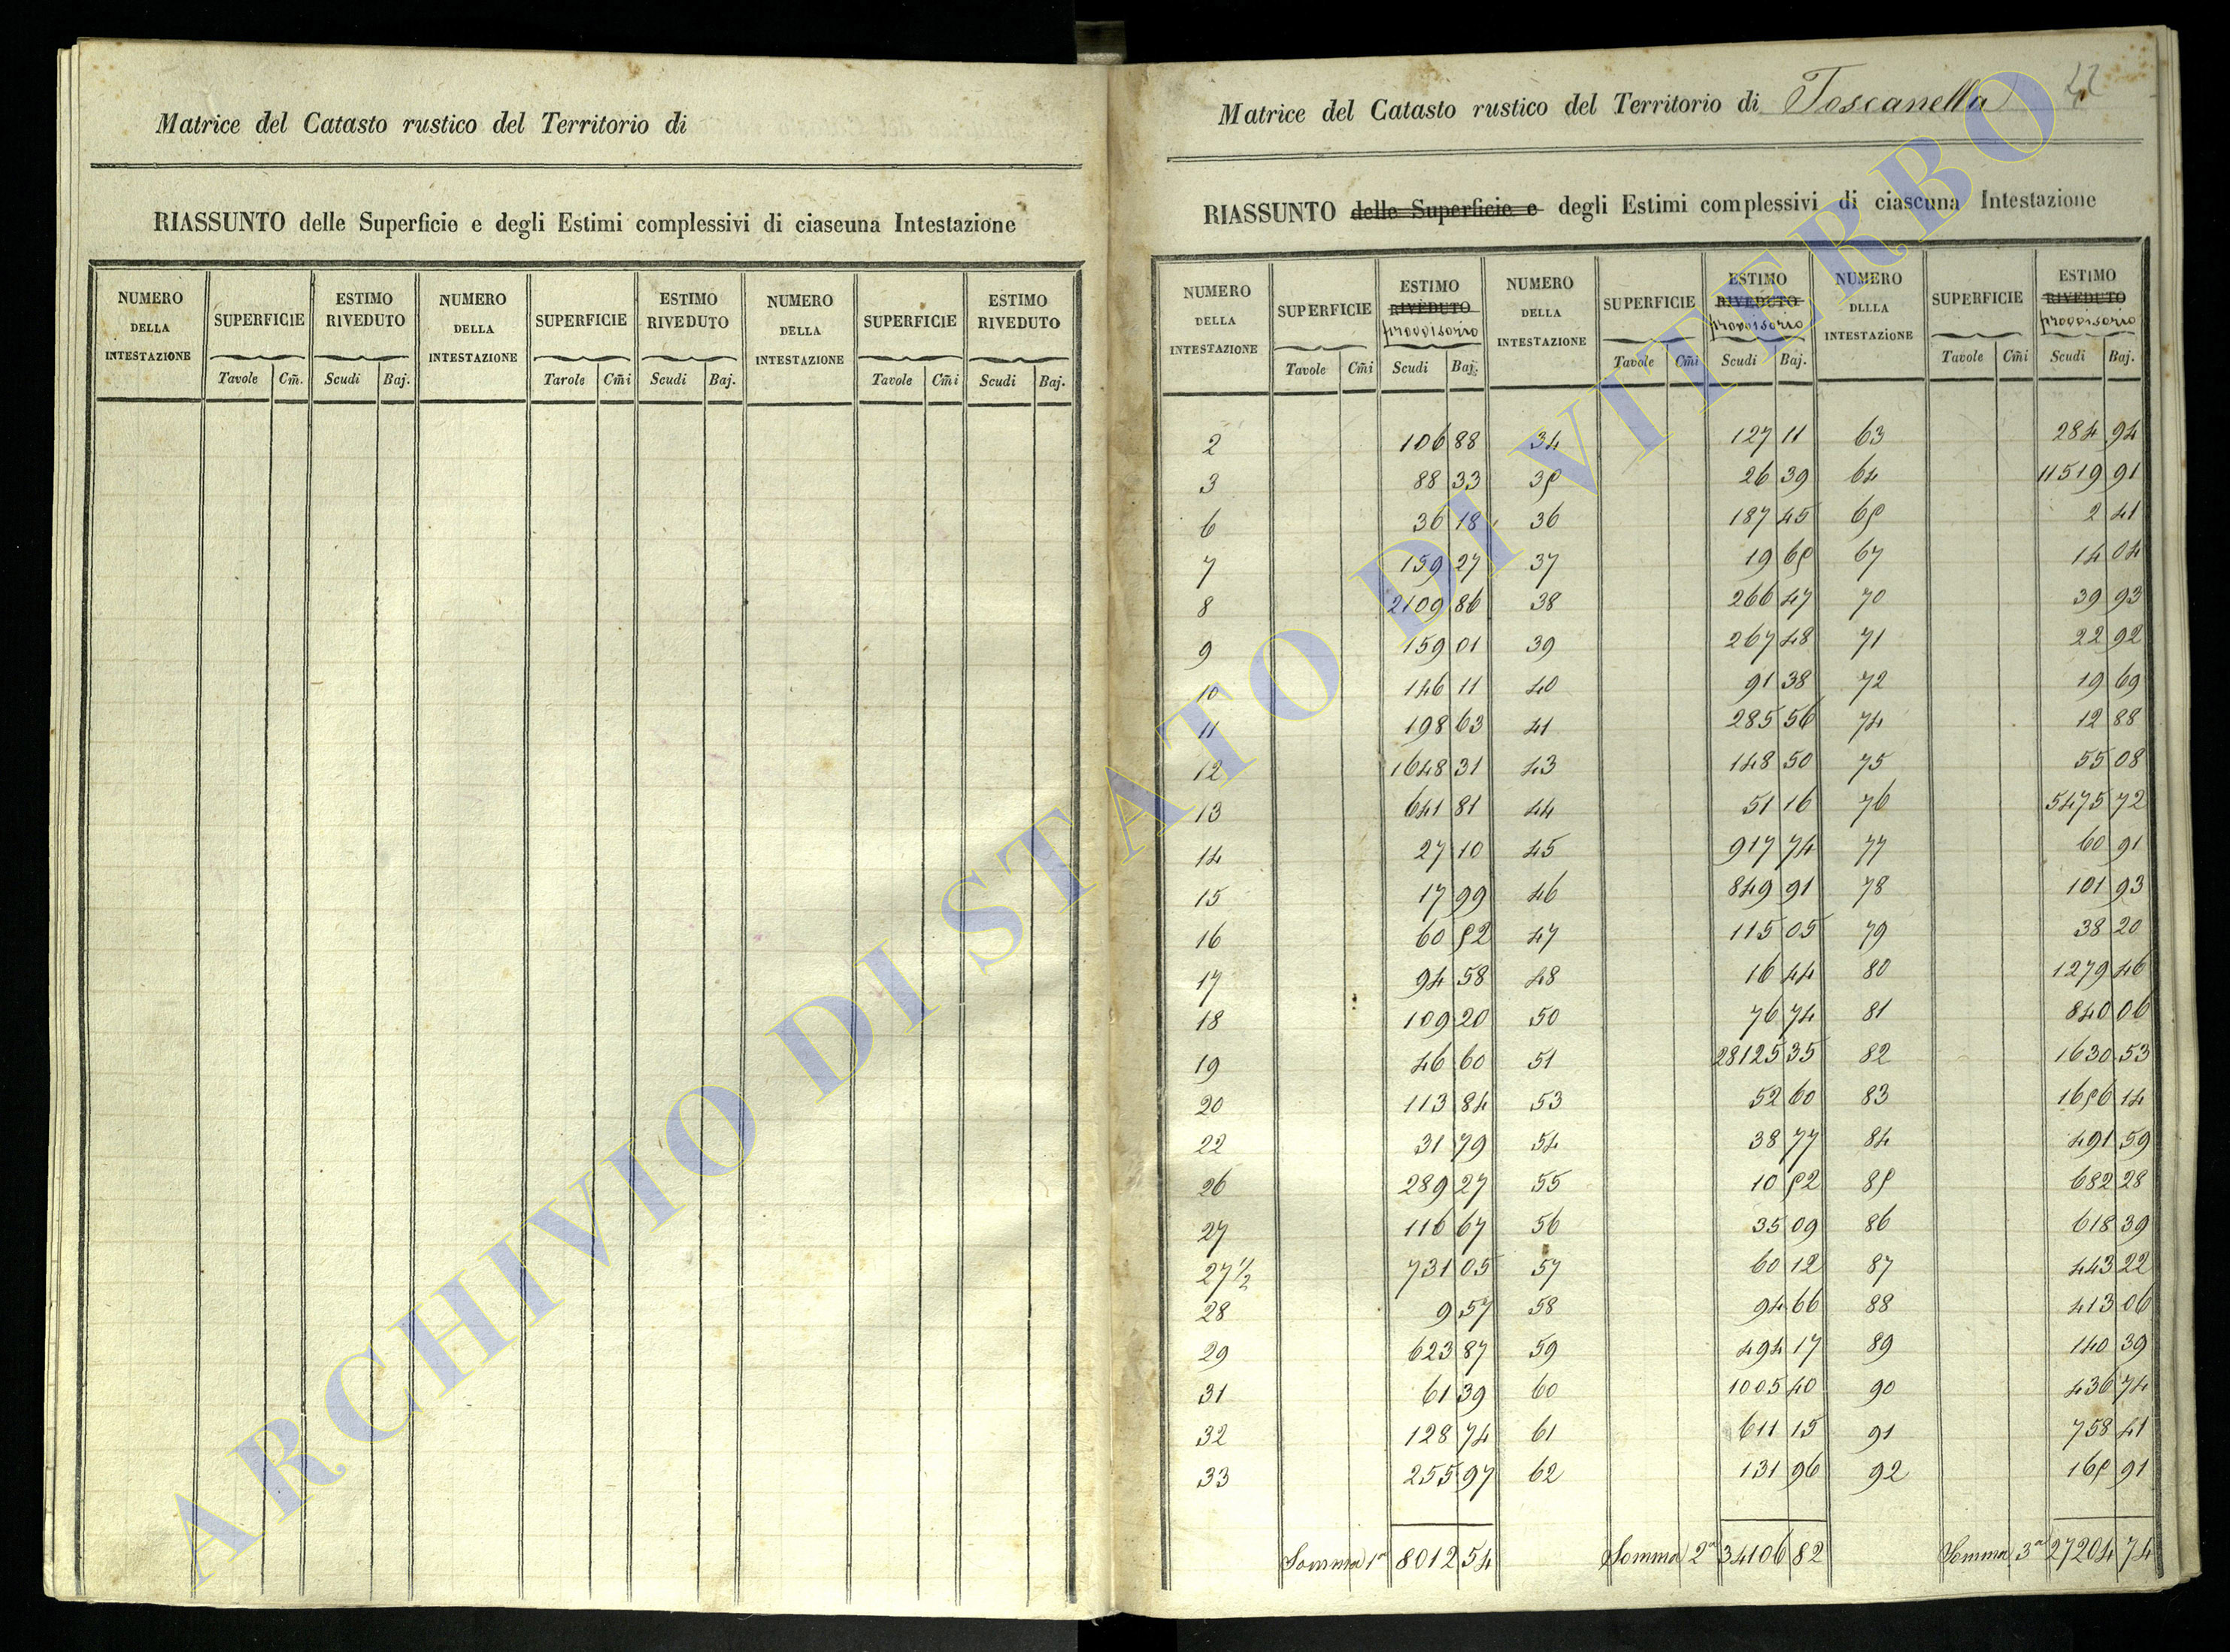 Matrice del Catasto rustico del Territorio di
RIASSUNTO delle Superficie e degli Estimi complessivi di ciascuna Intestazione
NUMERO DELLA INTESTAZIONE SUPERFICIE ESTIMO RIVEDUTO NUMERO DELLA INTESTAZIONE SUPERFICIE ESTIMO RIVEDUTO NUMERO DELLA INTESTAZIONE SUPERFICIE ESTIMO RIVEDUTO
Tavole Cm̃. Scudi Baj. Tarole Cm̃i Scudi Baj. Tavole Cm̃i Scudi Baj.
Matrice del Catasto rustico del Territorio di Toscanella
RIASSUNTO delle Superficie e degli Estimi complessivi di ciascuna Intestazione
NUMERO DELLA INTESTAZIONE SUPERFICIE ESTIMO RIVEDUTO provvisorio NUMERO DELLA INTESTAZIONE SUPERFICIE ESTIMO RIVEDUTO provvisorio NUMERO DLLLA INTESTAZIONE SUPERFICIE ESTIMO RIVEDUTO provvisorio
Tavole Cm̃i Scudi Baj. Tavole Cm̃i Scudi Baj. Tavole Cm̃i Scudi Baj.
2 106 88 34 127 11 63 284 94
3 88 33 35 26 39 64 11519 91
6 36 18 36 187 45 65 2 41
7 159 27 37 19 65 67 14 04
8 2109 86 38 266 47 70 39 93
9 159 01 39 267 48 71 22 92
10 146 11 40 91 38 72 19 69
11 198 63 41 285 56 74 12 88
12 1648 31 43 148 50 75 55 08
13 641 81 44 51 16 76 5475 72
14 27 10 45 917 74 77 60 91
15 17 99 46 849 91 78 101 93
16 60 52 47 115 05 79 38 20
17 94 58 48 16 44 80 1279 46
18 109 20 50 76 74 81 840 06
19 46 60 51 28125 35 82 1630 53
20 113 84 53 52 60 83 1656 14
22 31 79 54 38 77 84 491 59
26 289 27 55 10 52 85 682 28
27 116 67 56 35 09 86 618 39
27 1/2 731 05 57 60 12 87 443 22
28 9 57 58 94 66 88 413 06
29 623 87 59 494 17 89 140 39
31 61 39 60 1005 40 90 436 74
32 128 74 61 611 15 91 758 41
33 255 97 62 131 96 92 165 91
Somma 1ª 8012 54 Somma 2ª 34106 82 Somma 3ª 27204 74
ARCHIVIO DI STATO DI VITERBO